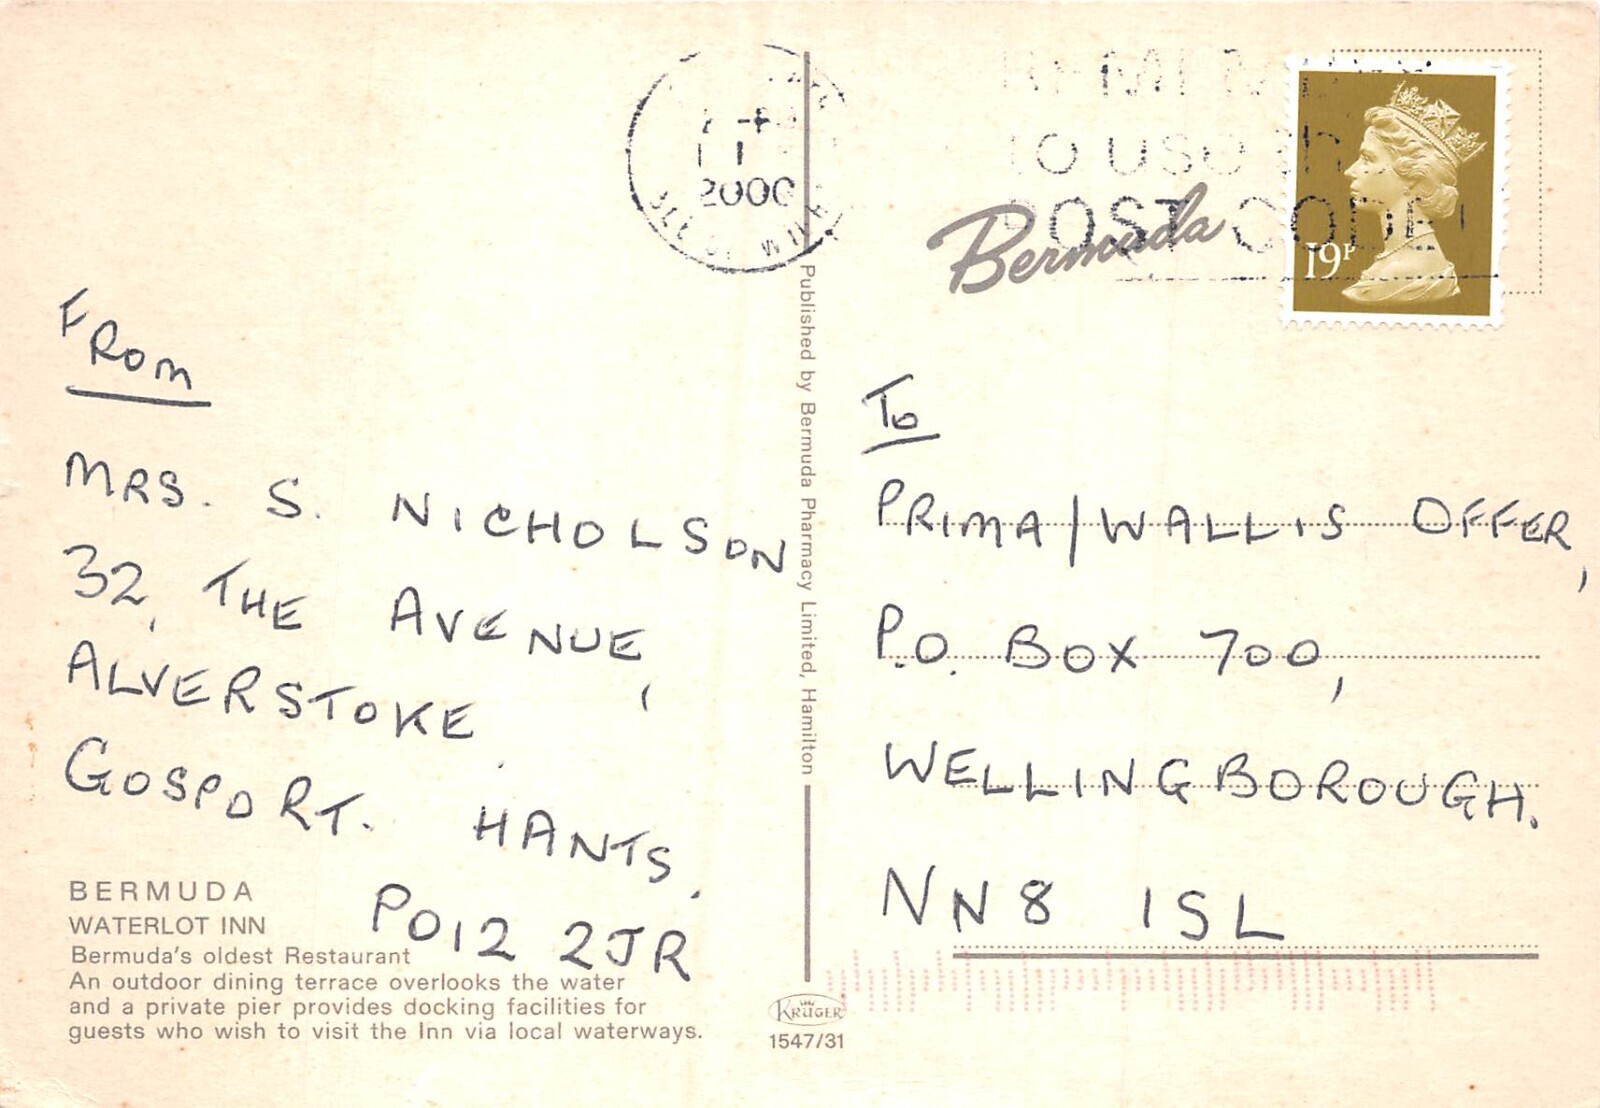 2000
TO USE THE
POST CODE
19P
Bermuda
FROM
MRS. S. NICHOLSON
32, THE AVENUE,
ALVERSTOKE.
GOSPORT. HANTS.
PO12 2JR
To
PRIMA/WALLIS OFFER,
P.O. BOX 700,
WELLINGBOROUGH.
NN8 1SL
Published by Bermuda Pharmacy Limited, Hamilton
BERMUDA
WATERLOT INN
Bermuda's oldest Restaurant
An outdoor dining terrace overlooks the water
and a private pier provides docking facilities for
guests who wish to visit the Inn via local waterways.
KRÜGER
1547/31